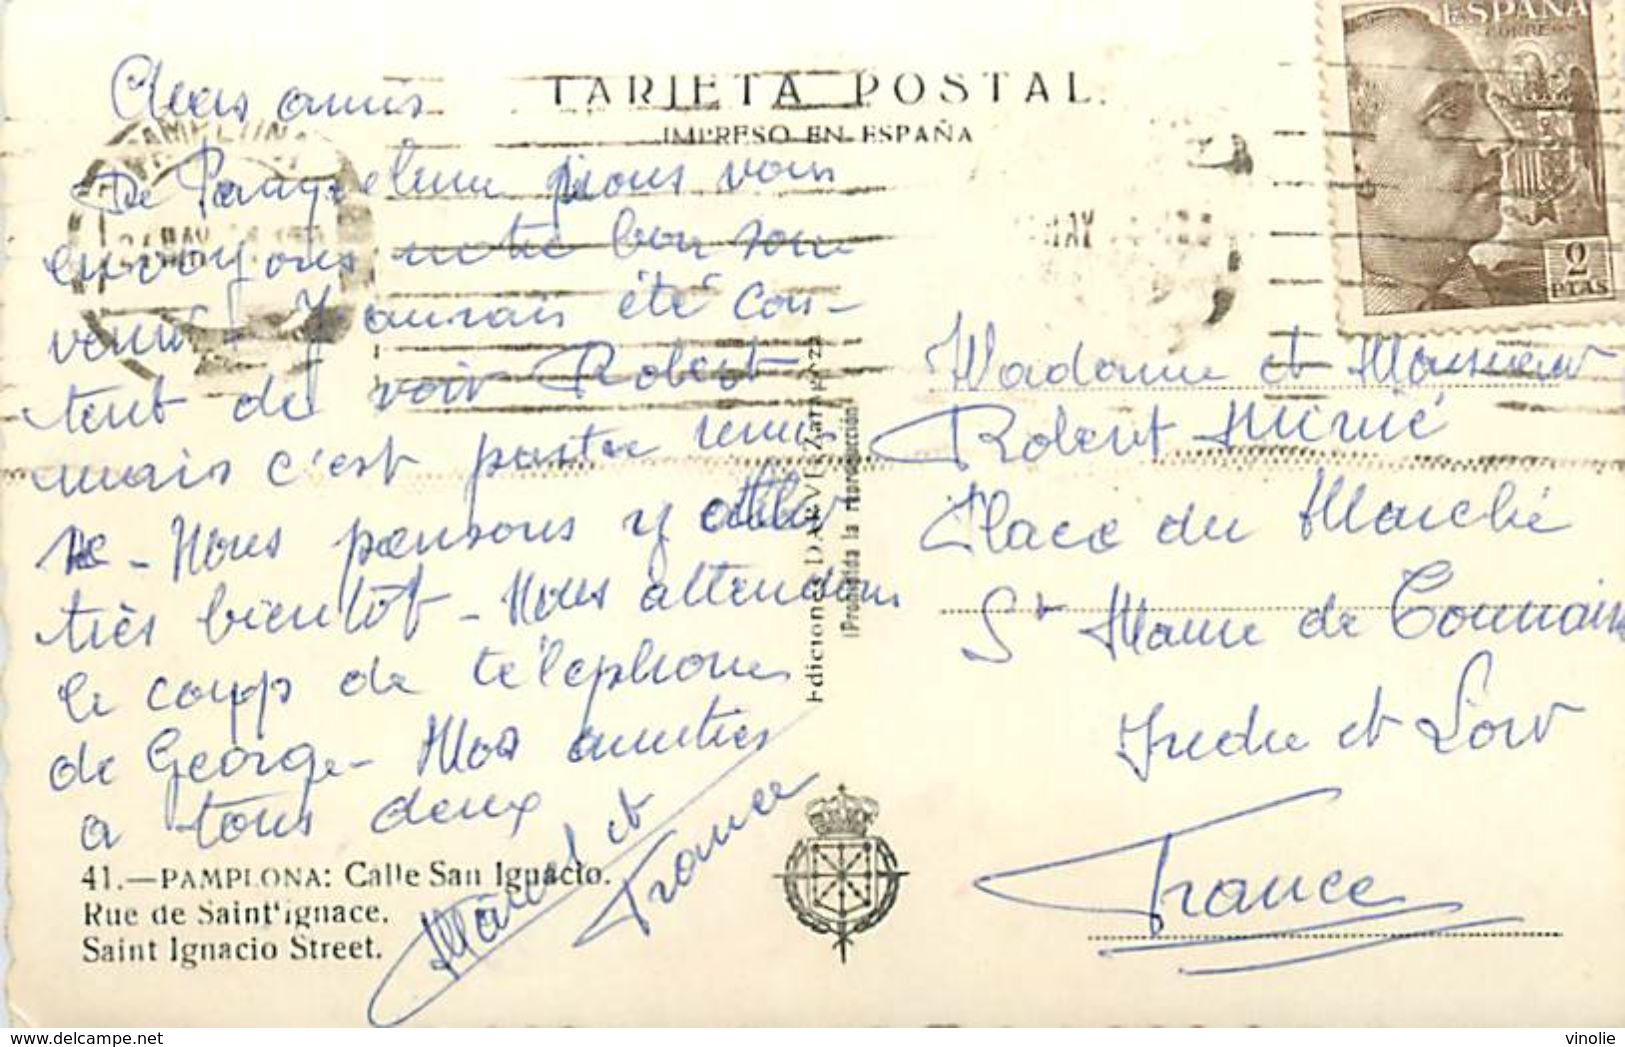 TARJETA POSTAL
IMPRESO EN ESPAÑA
ESPAÑA
CORREOS
2
PTAS
PAMPLONA
MAY
Chers amis
De Pampelune nous vous
envoyons notre bon souvenir
venir - J'aurais été con-
tent de voir Robert
mais c'est partie remi
se - Nous pensons y aller
très bientôt - Nous attendons
le coup de téléphone
de George - Mes amitiés
a tous deux
Marcel et
France
Ediciones DARVI. Zaragoza
(Prohibida la reproducción)
Madame et Monsieur
Robert
Place du Marché
St Maure de Touraine
Indre et Loir
France
41.—PAMPLONA: Calle San Ignacio.
Rue de Saint'ignace.
Saint Ignacio Street.
vinolie